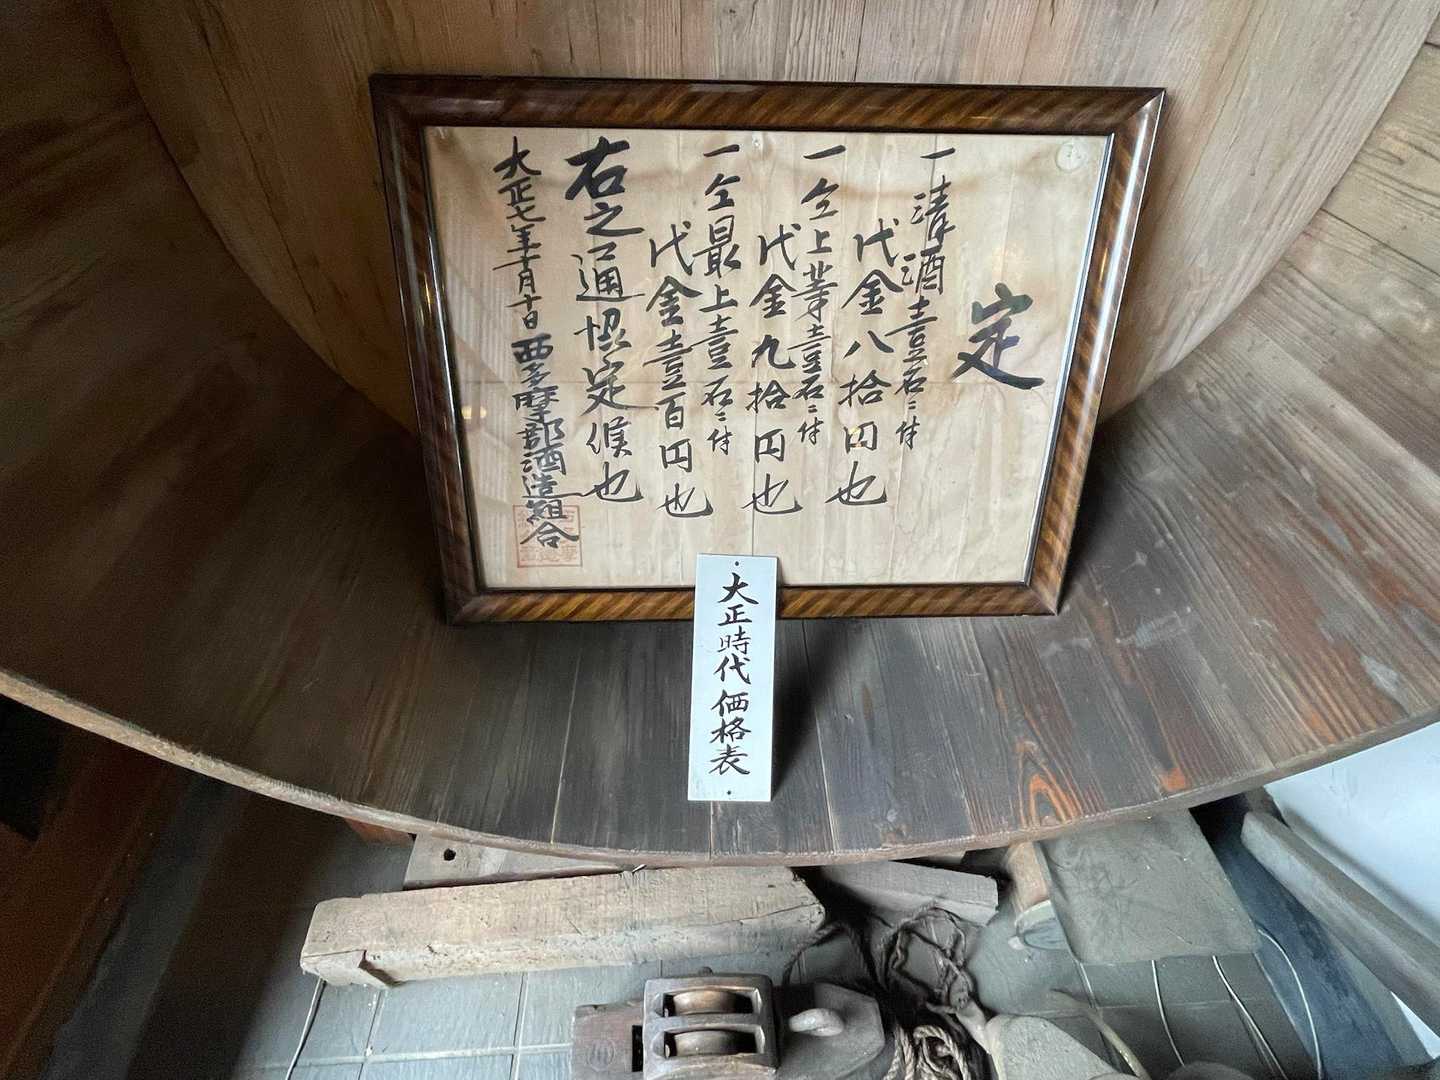 定
一清酒壹石ニ付
代金八拾円也
一仝上等壹石ニ付
代金九拾円也
一仝最上壹石ニ付
代金壹百円也
右之通協定候也
大正七年十月十日 西多摩郡酒造組合
大正時代価格表